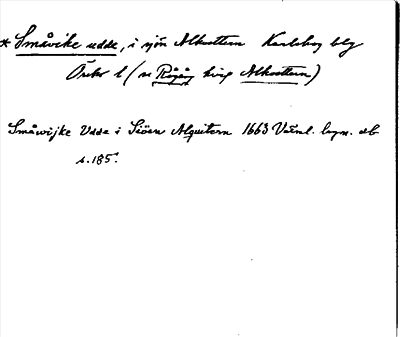 * Småvike udde, i sjön Alkvettern Karlskog blg
Örebro l (se Råjäg kring Alkvettern)
Småwijke Udde i Siöen Alquitern 1663 Värml. lagm. db
s. 185.